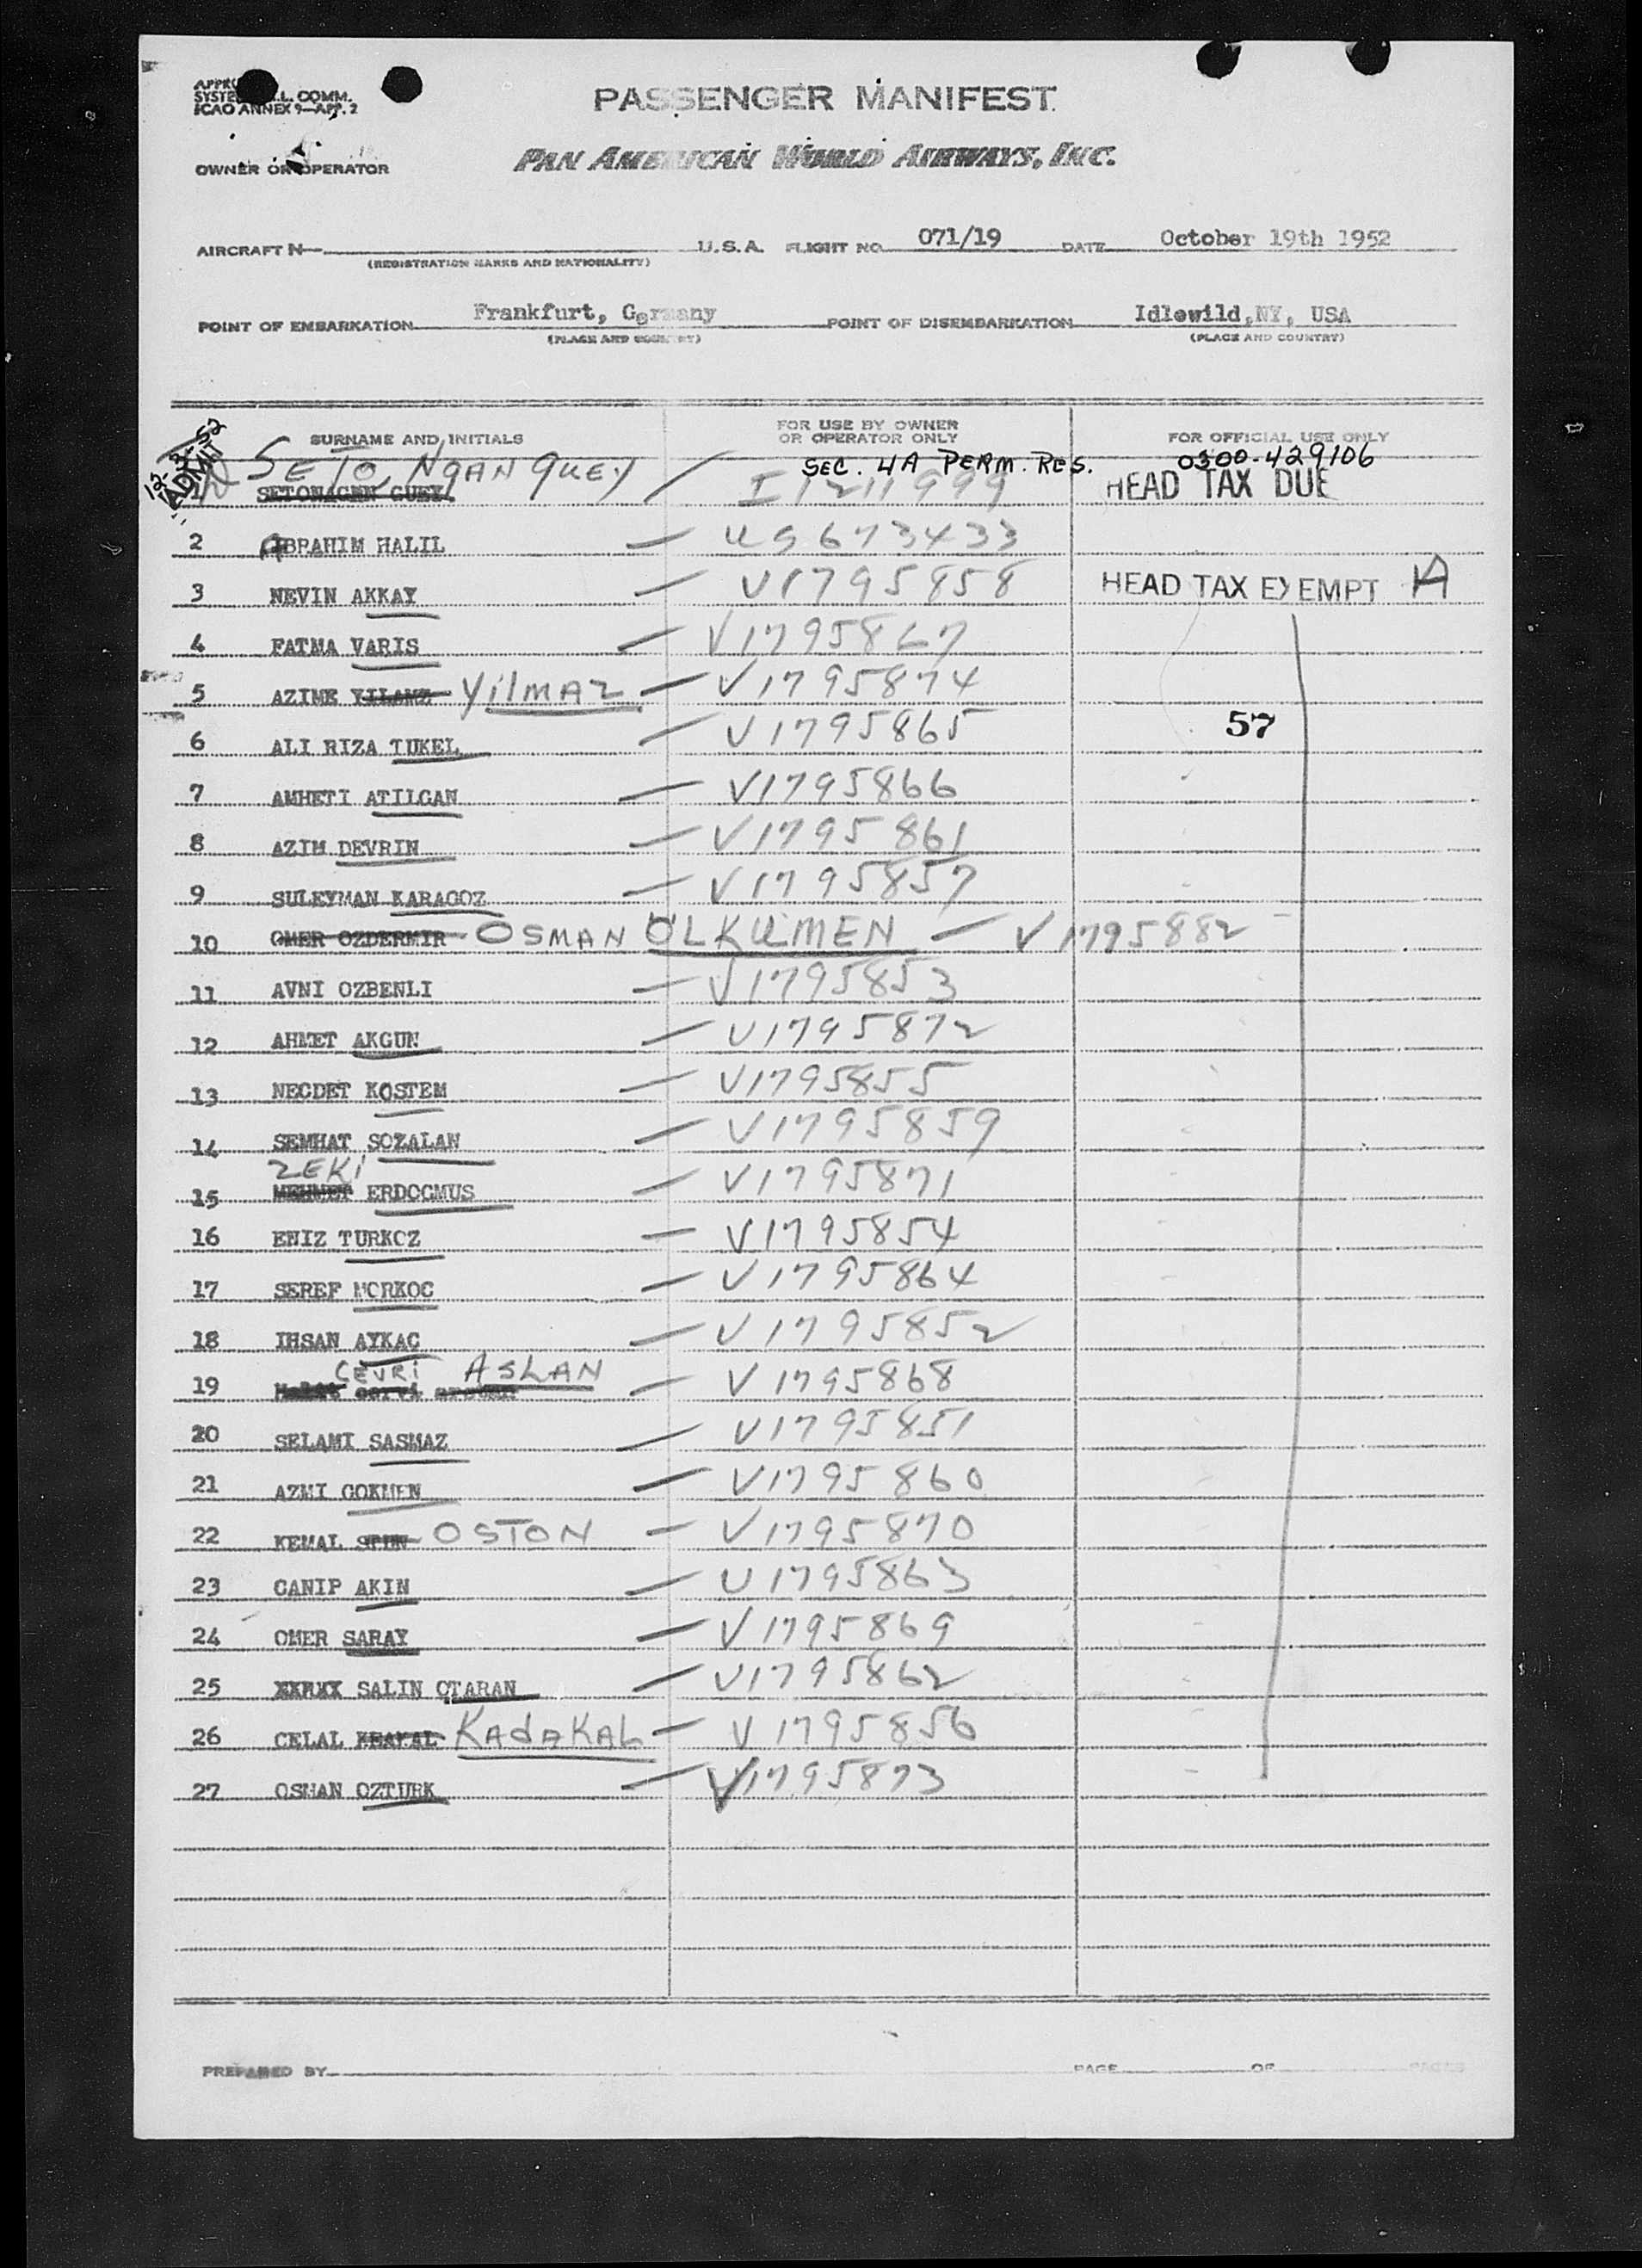 ICAO ANNEX 9—APP. 2
PASSENGER MANIFEST
OWNER OR OPERATOR PAN AMERICAN WORLD AIRWAYS, INC.
AIRCRAFT N— U.S.A. FLIGHT NO. 071/19 DATE October 19th 1952
(REGISTRATION MARKS AND NATIONALITY)
POINT OF EMBARKATION Frankfurt, Germany POINT OF DISEMBARKATION Idlewild,NY, USA
(PLACE AND COUNTRY) (PLACE AND COUNTRY)
12-3-52
ADMIT
SURNAME AND INITIALS FOR USE BY OWNER OR OPERATOR ONLY FOR OFFICIAL USE ONLY
SETO, NGAN QUEY SEC. 4A PERM. RES. 0300-429106
1 I 1211999 HEAD TAX DUE
2 IBRAHIM HALIL — US 673433
3 NEVIN AKKAY — V1795858 HEAD TAX EXEMPT A
4 FATMA VARIS — V1795867
5 AZIME YILMAZ — V1795874
6 ALI RIZA TUKEL — V1795865 57
7 AMHETI ATILGAN — V1795866
8 AZIM DEVRIN — V1795861
9 SULEYMAN KARAGOZ — V1795857
10 OMER OZDERMIR OSMAN ÖLKÜMEN — V1795882
11 AVNI OZBENLI — V1795853
12 AHMET AKGUN — V1795872
13 NECDET KOSTEM — V1795855
14 SEMHAT SOZALAN — V1795859
ZEKI
15 MEHMET ERDOGMUS — V1795871
16 ENIZ TURKOZ — V1795854
17 SEREF MORKOC — V1795864
18 IHSAN AYKAC — V1795852
CEVRI ASLAN
19 — V1795868
20 SELAMI SASMAZ — V1795851
21 AZMI GOKMEN — V1795860
22 KEMAL OSTON — V1795870
23 CANIP AKIN — V1795863
24 OMER SARAY — V1795869
25 SALIN OTARAN — V1795862
26 CELAL KADAKAL — V1795856
27 OSMAN OZTURK — V1795873
PREPARED BY PAGE OF PAGES